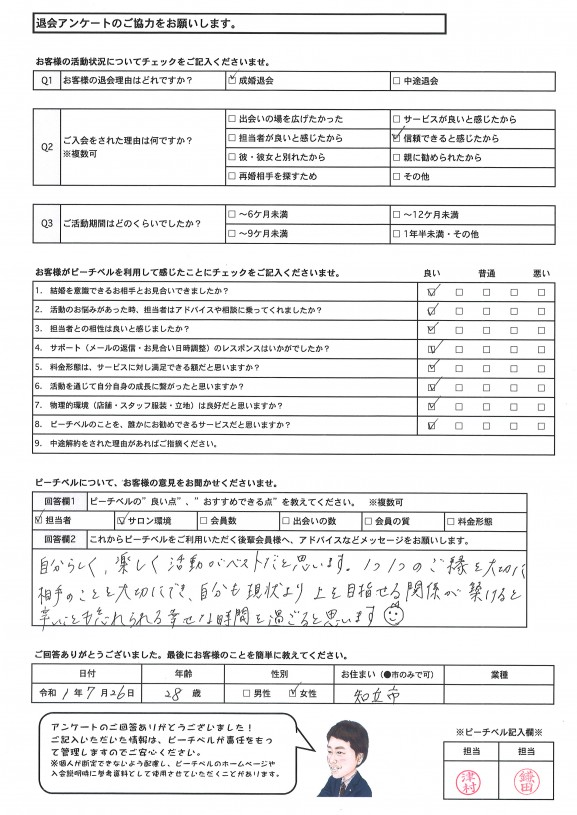 退会アンケートのご協力をお願いします。
お客様の活動状況についてチェックをご記入くださいませ。
Q1 お客様の退会理由はどれですか？ ☑成婚退会 □中途退会
Q2 ご入会をされた理由は何ですか？ ※複数可
□出会いの場を広げたかった □サービスが良いと感じたから
□担当者が良いと感じたから ☑信頼できると感じたから
□彼・彼女と別れたから □親に勧められたから
□再婚相手を探すため □その他
Q3 ご活動期間はどのくらいでしたか？
□〜6ケ月未満 □〜12ケ月未満
□〜9ケ月未満 □1年半未満・その他
お客様がビーチベルを利用して感じたことにチェックをご記入くださいませ。 良い 普通 悪い
1. 結婚を意識できるお相手とお見合いできましたか？ ☑ □ □ □ □
2. 活動のお悩みがあった時、担当者はアドバイスや相談に乗ってくれましたか？ ☑ □ □ □ □
3. 担当者との相性は良いと感じましたか？ ☑ □ □ □ □
4. サポート（メールの返信・お見合い日時調整）のレスポンスはいかがでしたか？ ☑ □ □ □ □
5. 料金形態は、サービスに対し満足できる額だと思いますか？ ☑ □ □ □ □
6. 活動を通じて自分自身の成長に繋がったと思いますか？ ☑ □ □ □ □
7. 物理的環境（店舗・スタッフ服装・立地）は良好だと思いますか？ ☑ □ □ □ □
8. ビーチベルのことを、誰かにお勧めできるサービスだと思いますか？ ☑ □ □ □ □
9. 中途解約をされた理由があればご指摘ください。
ビーチベルについて、お客様の意見をお聞かせくださいませ。
回答欄1 ビーチベルの”良い点”、”おすすめできる点”を教えてください。 ※複数可
☑担当者 ☑サロン環境 □会員数 □出会いの数 □会員の質 □料金形態
回答欄2 これからビーチベルをご利用いただく後輩会員様へ、アドバイスなどメッセージをお願いします。
自分らしく、楽しく活動がベストだと思います。1つ1つのご縁を大切に
相手のことを大切にでき、自分も現状より上を目指せる関係が築けると
辛いことも忘れられる幸せな時間を過ごると思います
ご回答ありがとうございました。最後にお客様のことを簡単に教えてください。
日付 年齢 性別 お住まい（●市のみで可） 業種
令和 1年 7月26日 28歳 □男性 ☑女性 知立市
アンケートのご回答ありがとうございました！
ご記入いただいた情報は、ビーチベルが責任をもっ
て管理しますのでご安心ください。
※個人が断定できないよう配慮し、ビーチベルのホームページや
入会説明時に参考資料として使用させていただくことがあります。
※ビーチベル記入欄※
担当 担当
津村 鎌田